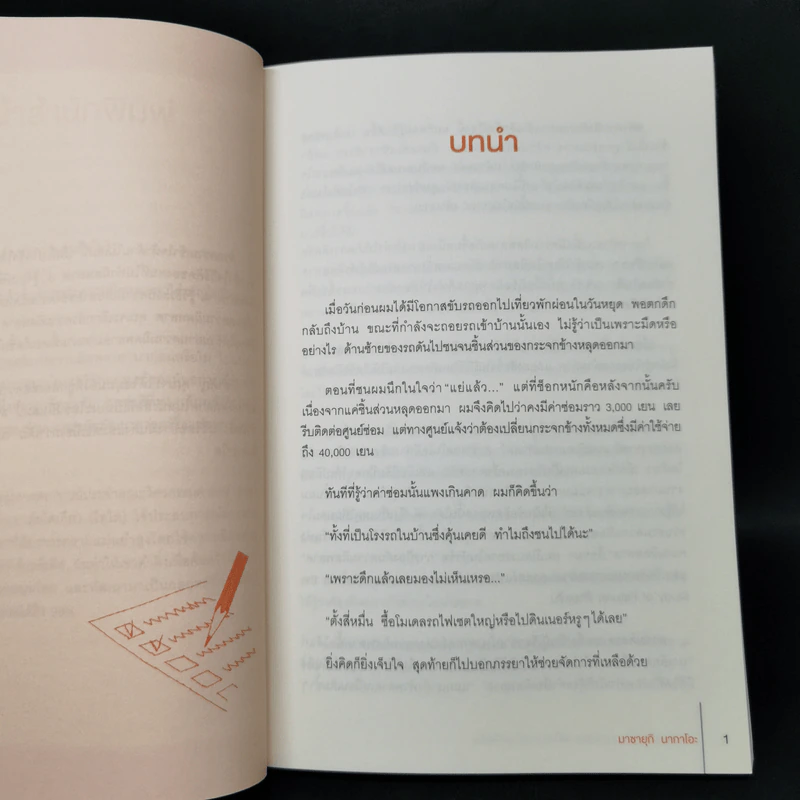 บทนำ
เมื่อวันก่อนผมได้มีโอกาสขับรถออกไปเที่ยวพักผ่อนในวันหยุด พอตกดึก
กลับถึงบ้าน ขณะที่กำลังจะถอยรถเข้าบ้านนั้นเอง ไม่รู้ว่าเป็นเพราะมืดหรือ
อย่างไร ด้านซ้ายของรถดันไปชนจนชิ้นส่วนของกระจกข้างหลุดออกมา
ตอนที่ชนผมนึกในใจว่า "แย่แล้ว..." แต่ที่ช็อกหนักคือหลังจากนั้นครับ
เนื่องจากแค่ชิ้นส่วนหลุดออกมา ผมจึงคิดไปว่าคงมีค่าซ่อมราว 3,000 เยน เลย
รีบติดต่อศูนย์ซ่อม แต่ทางศูนย์แจ้งว่าต้องเปลี่ยนกระจกข้างทั้งหมดซึ่งมีค่าใช้จ่าย
ถึง 40,000 เยน
ทันทีที่รู้ว่าค่าซ่อมนั้นแพงเกินคาด ผมก็คิดขึ้นว่า
"ทั้งที่เป็นโรงรถในบ้านซึ่งคุ้นเคยดี ทำไมถึงชนไปได้นะ"
"เพราะดึกแล้วเลยมองไม่เห็นเหรอ..."
"ตั้งสี่หมื่น ซื้อโมเดลรถไฟเซตใหญ่หรือไปดินเนอร์หรูๆ ได้เลย"
ยิ่งคิดก็ยิ่งเจ็บใจ สุดท้ายก็ไปบอกภรรยาให้ช่วยจัดการที่เหลือด้วย
มาซายุกิ นากาโอะ 1